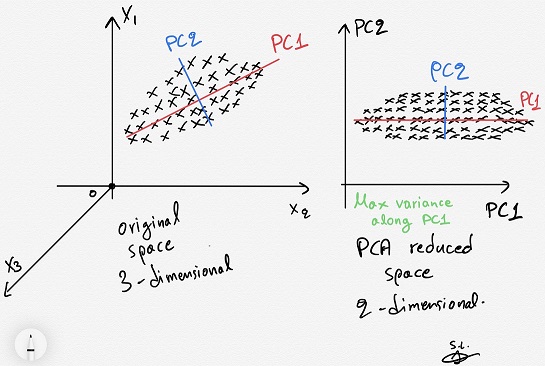 X1
PC2
PC1
0
X2
X3
original
space
3-dimensional
PC2
PC2
PC1
PC1
Max variance
along PC1
PCA reduced
space
2-dimensional.
S.L.